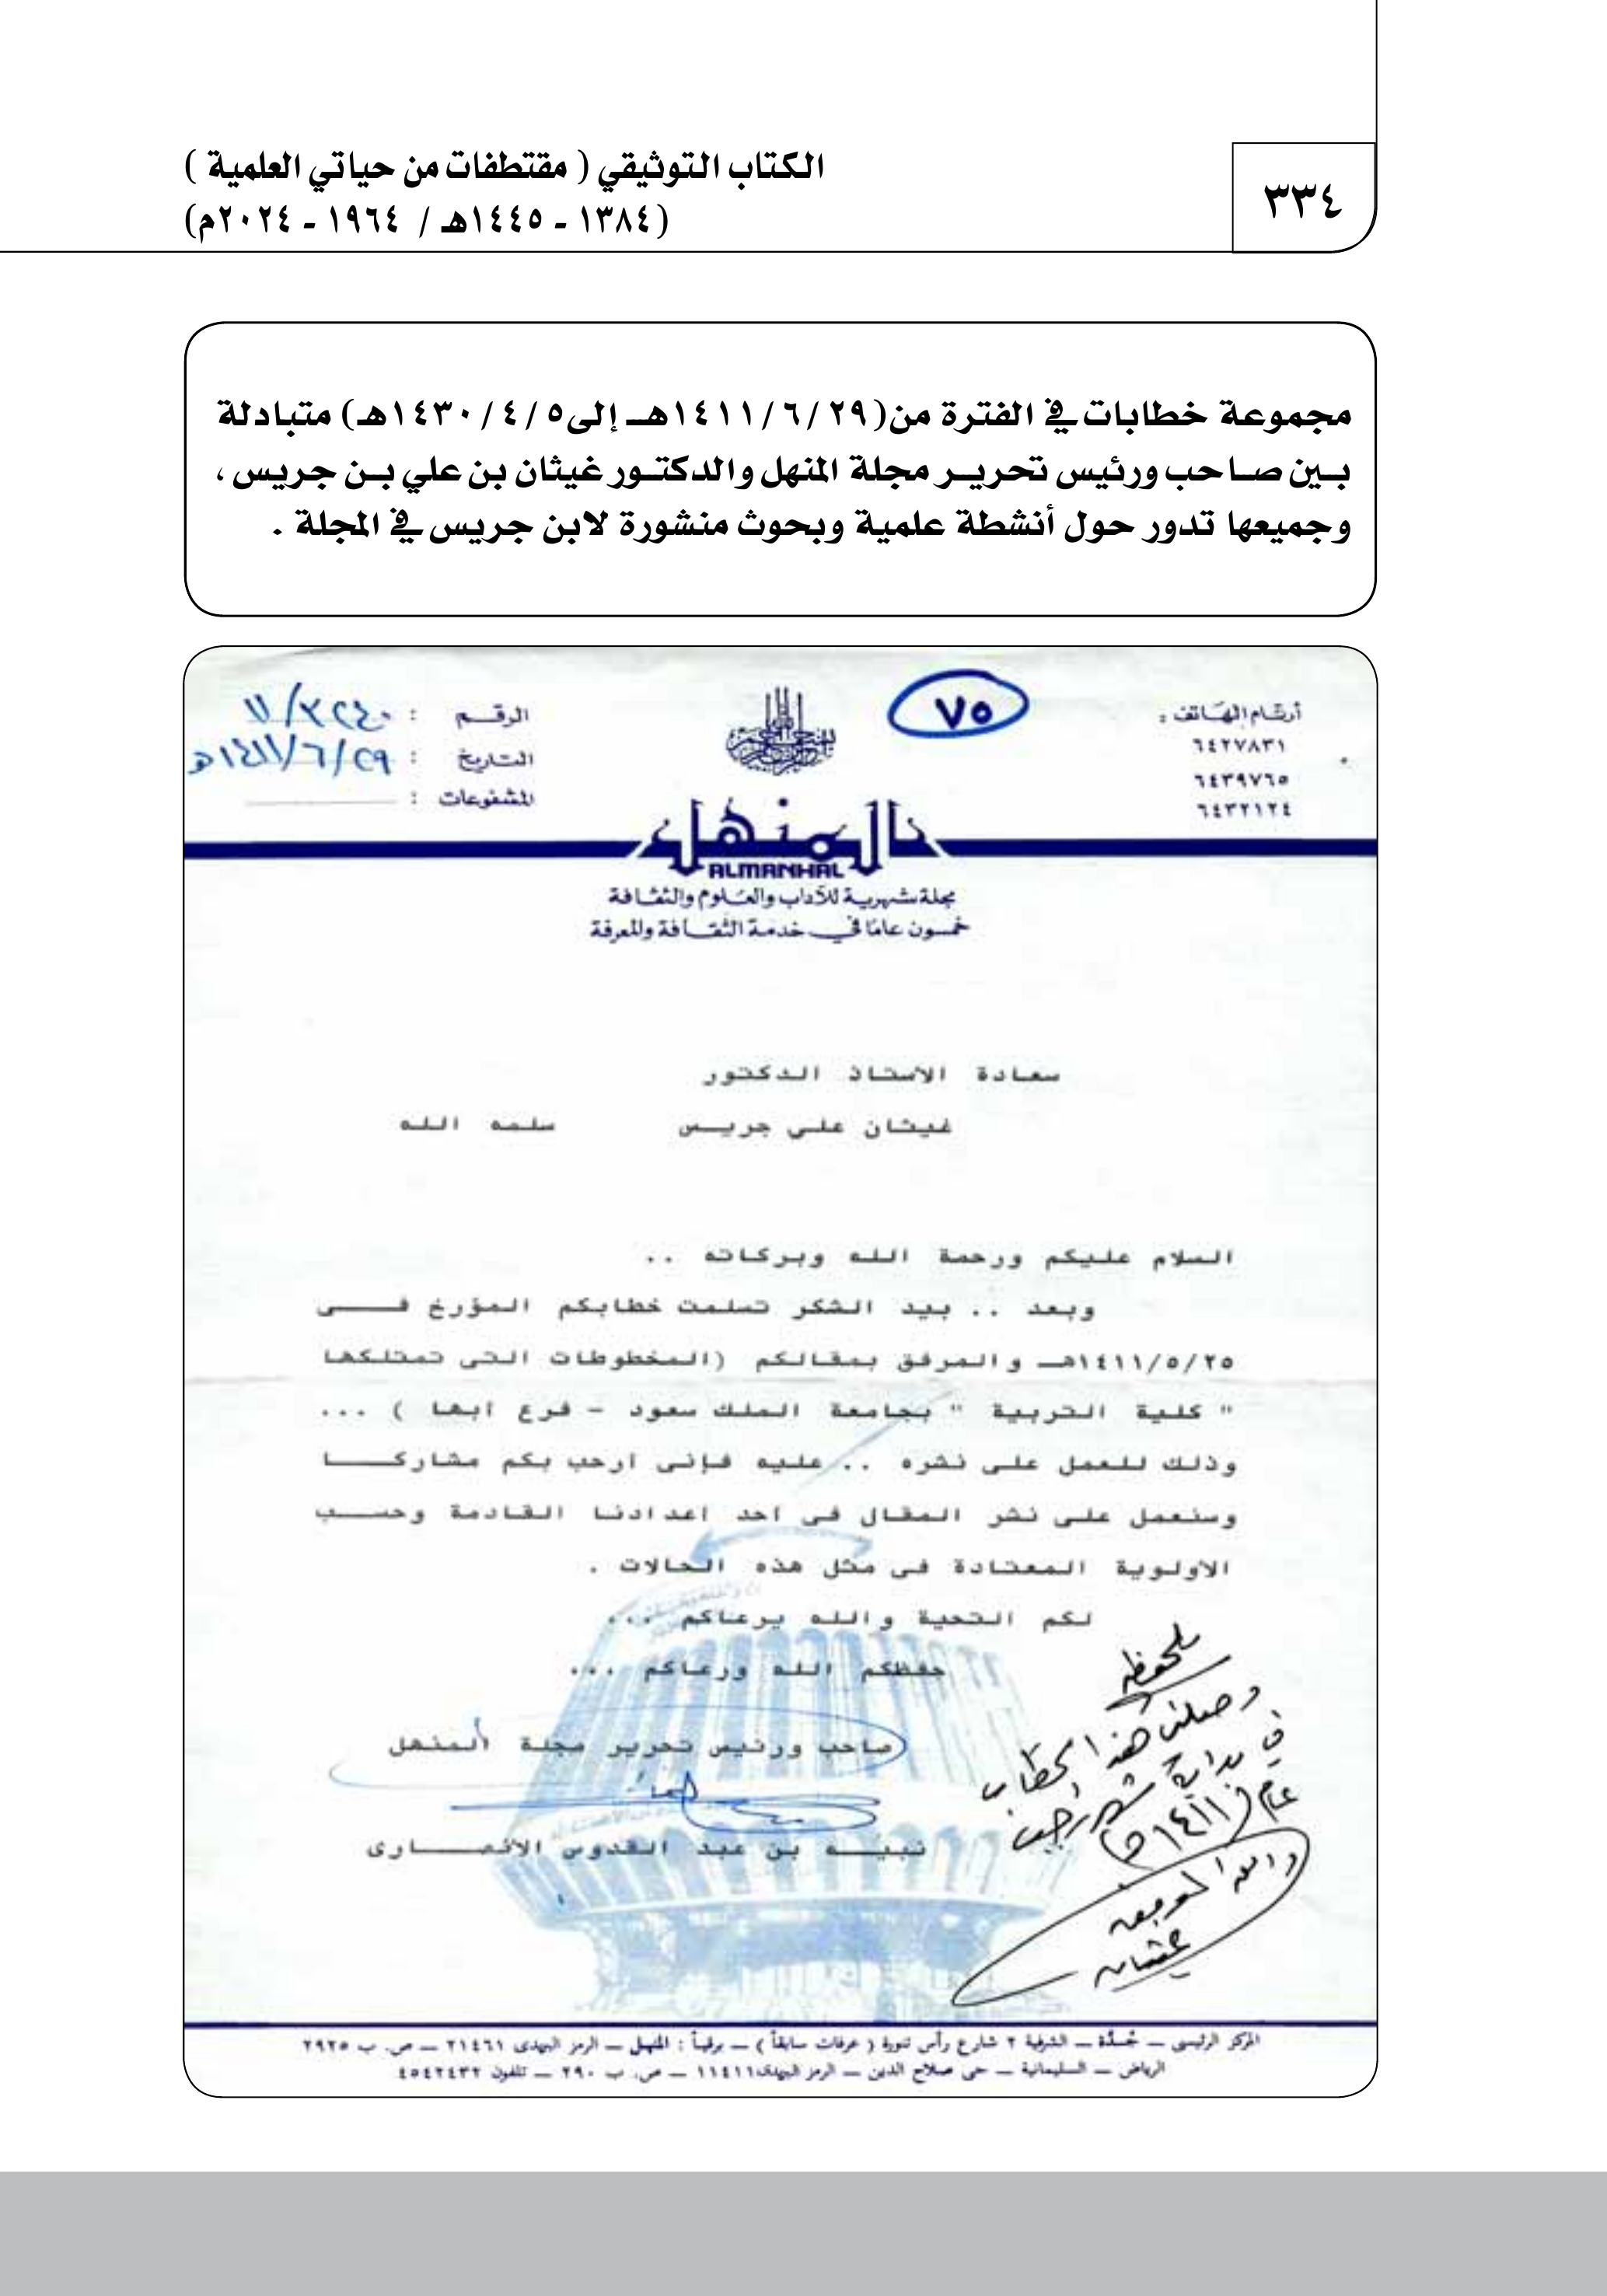 ٣٣٤
الكتاب التوثيقي ( مقتطفات من حياتي العلمية )
(١٣٨٤ - ١٤٤٥هـ / ١٩٦٤ - ٢٠٢٤م)
مجموعة خطابات في الفترة من (١٤١١/٦/٢٩هـ إلى ١٤٣٠/٤/٥هـ) متبادلة
بين صاحب ورئيس تحرير مجلة المنهل والدكتور غيثان بن علي بن جريس ،
وجميعها تدور حول أنشطة علمية وبحوث منشورة لابن جريس في المجلة .
أرقام الهاتف :
٦٤٢٧٨٣١
٦٤٣٩٧٦٥
٦٤٣٢١٢٤
٧٥
بسم الله الرحمن الرحيم
الرقم : ١١/٣٢٤٠
التاريخ : ١٤١١/٦/٢٩هـ
المشفوعات :
المنهل
ALMANHAL
مجلة شهرية للآداب والعلوم والثقافة
خمسون عامًا في خدمة الثقافة والمعرفة
سعادة الاستاذ الدكتور
غيثان على جريس سلمه الله
السلام عليكم ورحمة الله وبركاته ..
وبعد .. بيد الشكر تسلمت خطابكم المؤرخ فى
١٤١١/٥/٢٥هـ والمرفق بمقالكم (المخطوطات التى تمتلكها
" كلية التربية " بجامعة الملك سعود - فرع أبها ) ...
وذلك للعمل على نشره .. عليه فإنى ارحب بكم مشاركا
وسنعمل على نشر المقال فى أحد أعدادنا القادمة وحسب
الاولوية المعتادة فى مثل هذه الحالات .
لكم التحية والله يرعاكم ...
حفظكم الله ورعاكم ...
صاحب ورئيس تحرير مجلة المنهل
نبيه بن عبد القدوس الانصارى
ملحوظه
وصلني هذا الخطاب
في بداية شهر رجب
عام (١٤١١هـ)
والله الموفق
غيثان
المركز الرئيسى — جُدَّة — الشرفية ٢ شارع رأس تنورة ( عرفات سابقاً ) — برقياً : المنهل — الرمز البريدى ٢١٤٦١ — ص. ب ٢٩٢٥
الرياض — السليمانية — حى صلاح الدين — الرمز البريدى ١١٤١١ — ص. ب ٢٩٠ — تلفون ٤٥٤٢٤٣٢